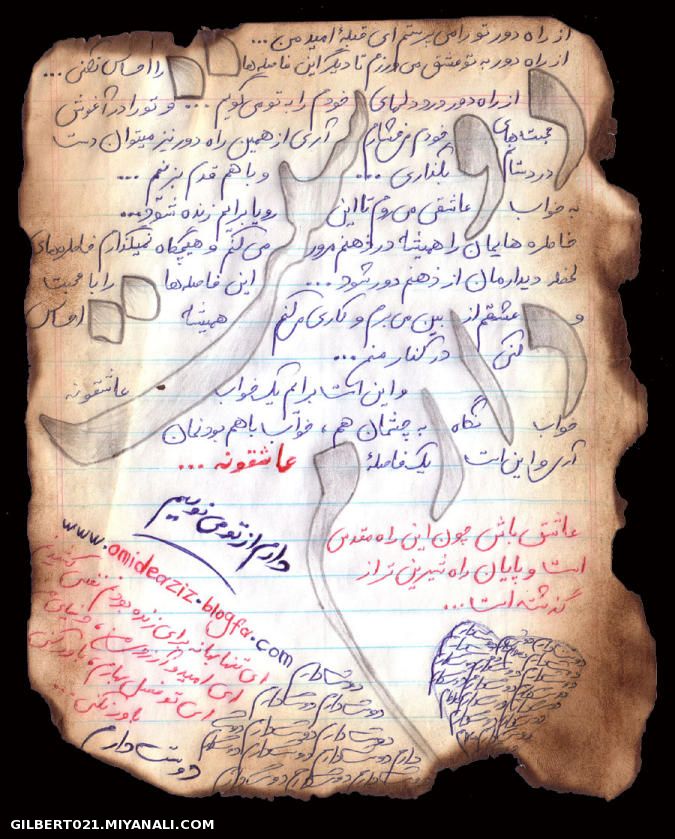 از راه دور تو را می پرستم ای قبلهٔ امید من ...
از راه دور به تو عشق می ورزم تا دیگر این فاصله ها را احساس نکنی ...
از راه دور درد دلهای خودم را به تو می گویم ... و تو را در آغوش
محبت های خودم می فشارم آری از همین راه دور نیز میتوان دست
در دستانم بگذاری ... و با هم قدم بزنیم ...
به خواب عاشقی می روم تا این رویا برایم زنده شود ...
خاطره هایمان را همیشه در ذهنم مرور می کنم و هیچگاه نمیگذارم خاطره های
لحظه دیدارمان از ذهنم دور شود ... این فاصله ها را با محبت
و عشقم از بین می برم و کاری می کنم همیشه احساس
کنی در کنار منم ...
و این است برایم یک خواب عاشقونه
خواب نگاه به چشمان هم ، خواب با هم بودنمان
آری و این است یک فاصلهٔ عاشقونه ...
دارم از تو می نویسم
عاشق باش چون این راه مقدس
است و پایان راه شیرین تر از
گذشته است ...
www.omideaziz.blogfa.com
ای تنها بهانه برای زنده بودنم نفس کشیدنم
ای امید و آرزوی من ،
باور نکنی ...
دوستت دارم
GILBERT021.MIYANALI.COM